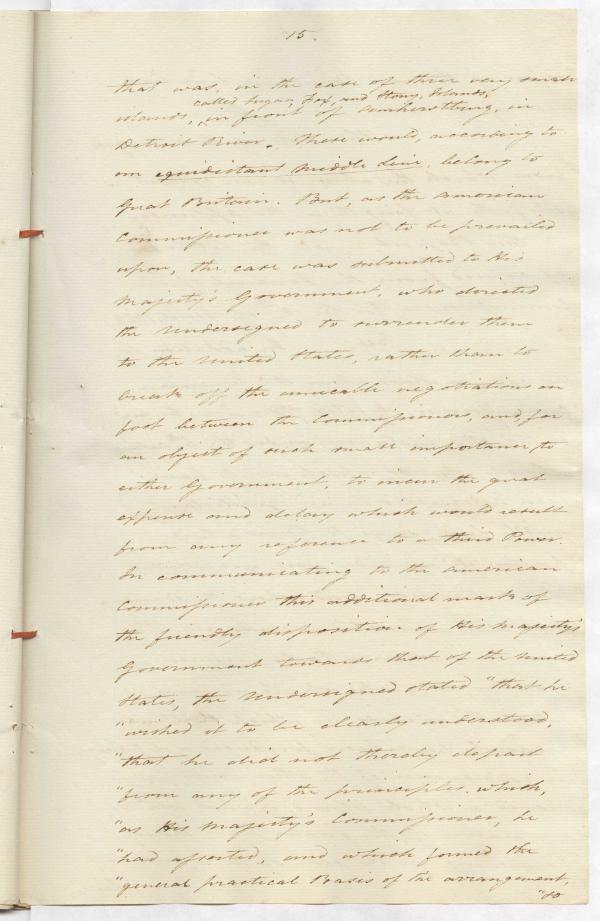 15.
that was, in the case of three very small
called Sugar, Fox, and Stony, Islands,
islands, in front of Amherstburg, in
Detroit River. These would, according to
an equidistant middle Line, belong to
Great Britain. But, as the American
Commissioner was not to be prevailed
upon, the case was submitted to His
Majesty's Government, who directed
the Undersigned to surrender them
to the United States, rather than to
break off the amicable negotiations on
foot between the Commissioners, and, for
an object of such small importance, to
either Government, to incur the great
expense and delay which would result
from any reference to a third Power.
In communicating to the American
Commissioner this additional mark of
the friendly disposition of His Majesty's
Government towards that of the United
States, the Undersigned stated "that he
"wished it to be clearly understood,
"that he did not thereby depart
"from any of the principles which,
"as His Majesty's Commissioner, he
"had asserted, and which formed the
"general practical Basis of the arrangement,
"so